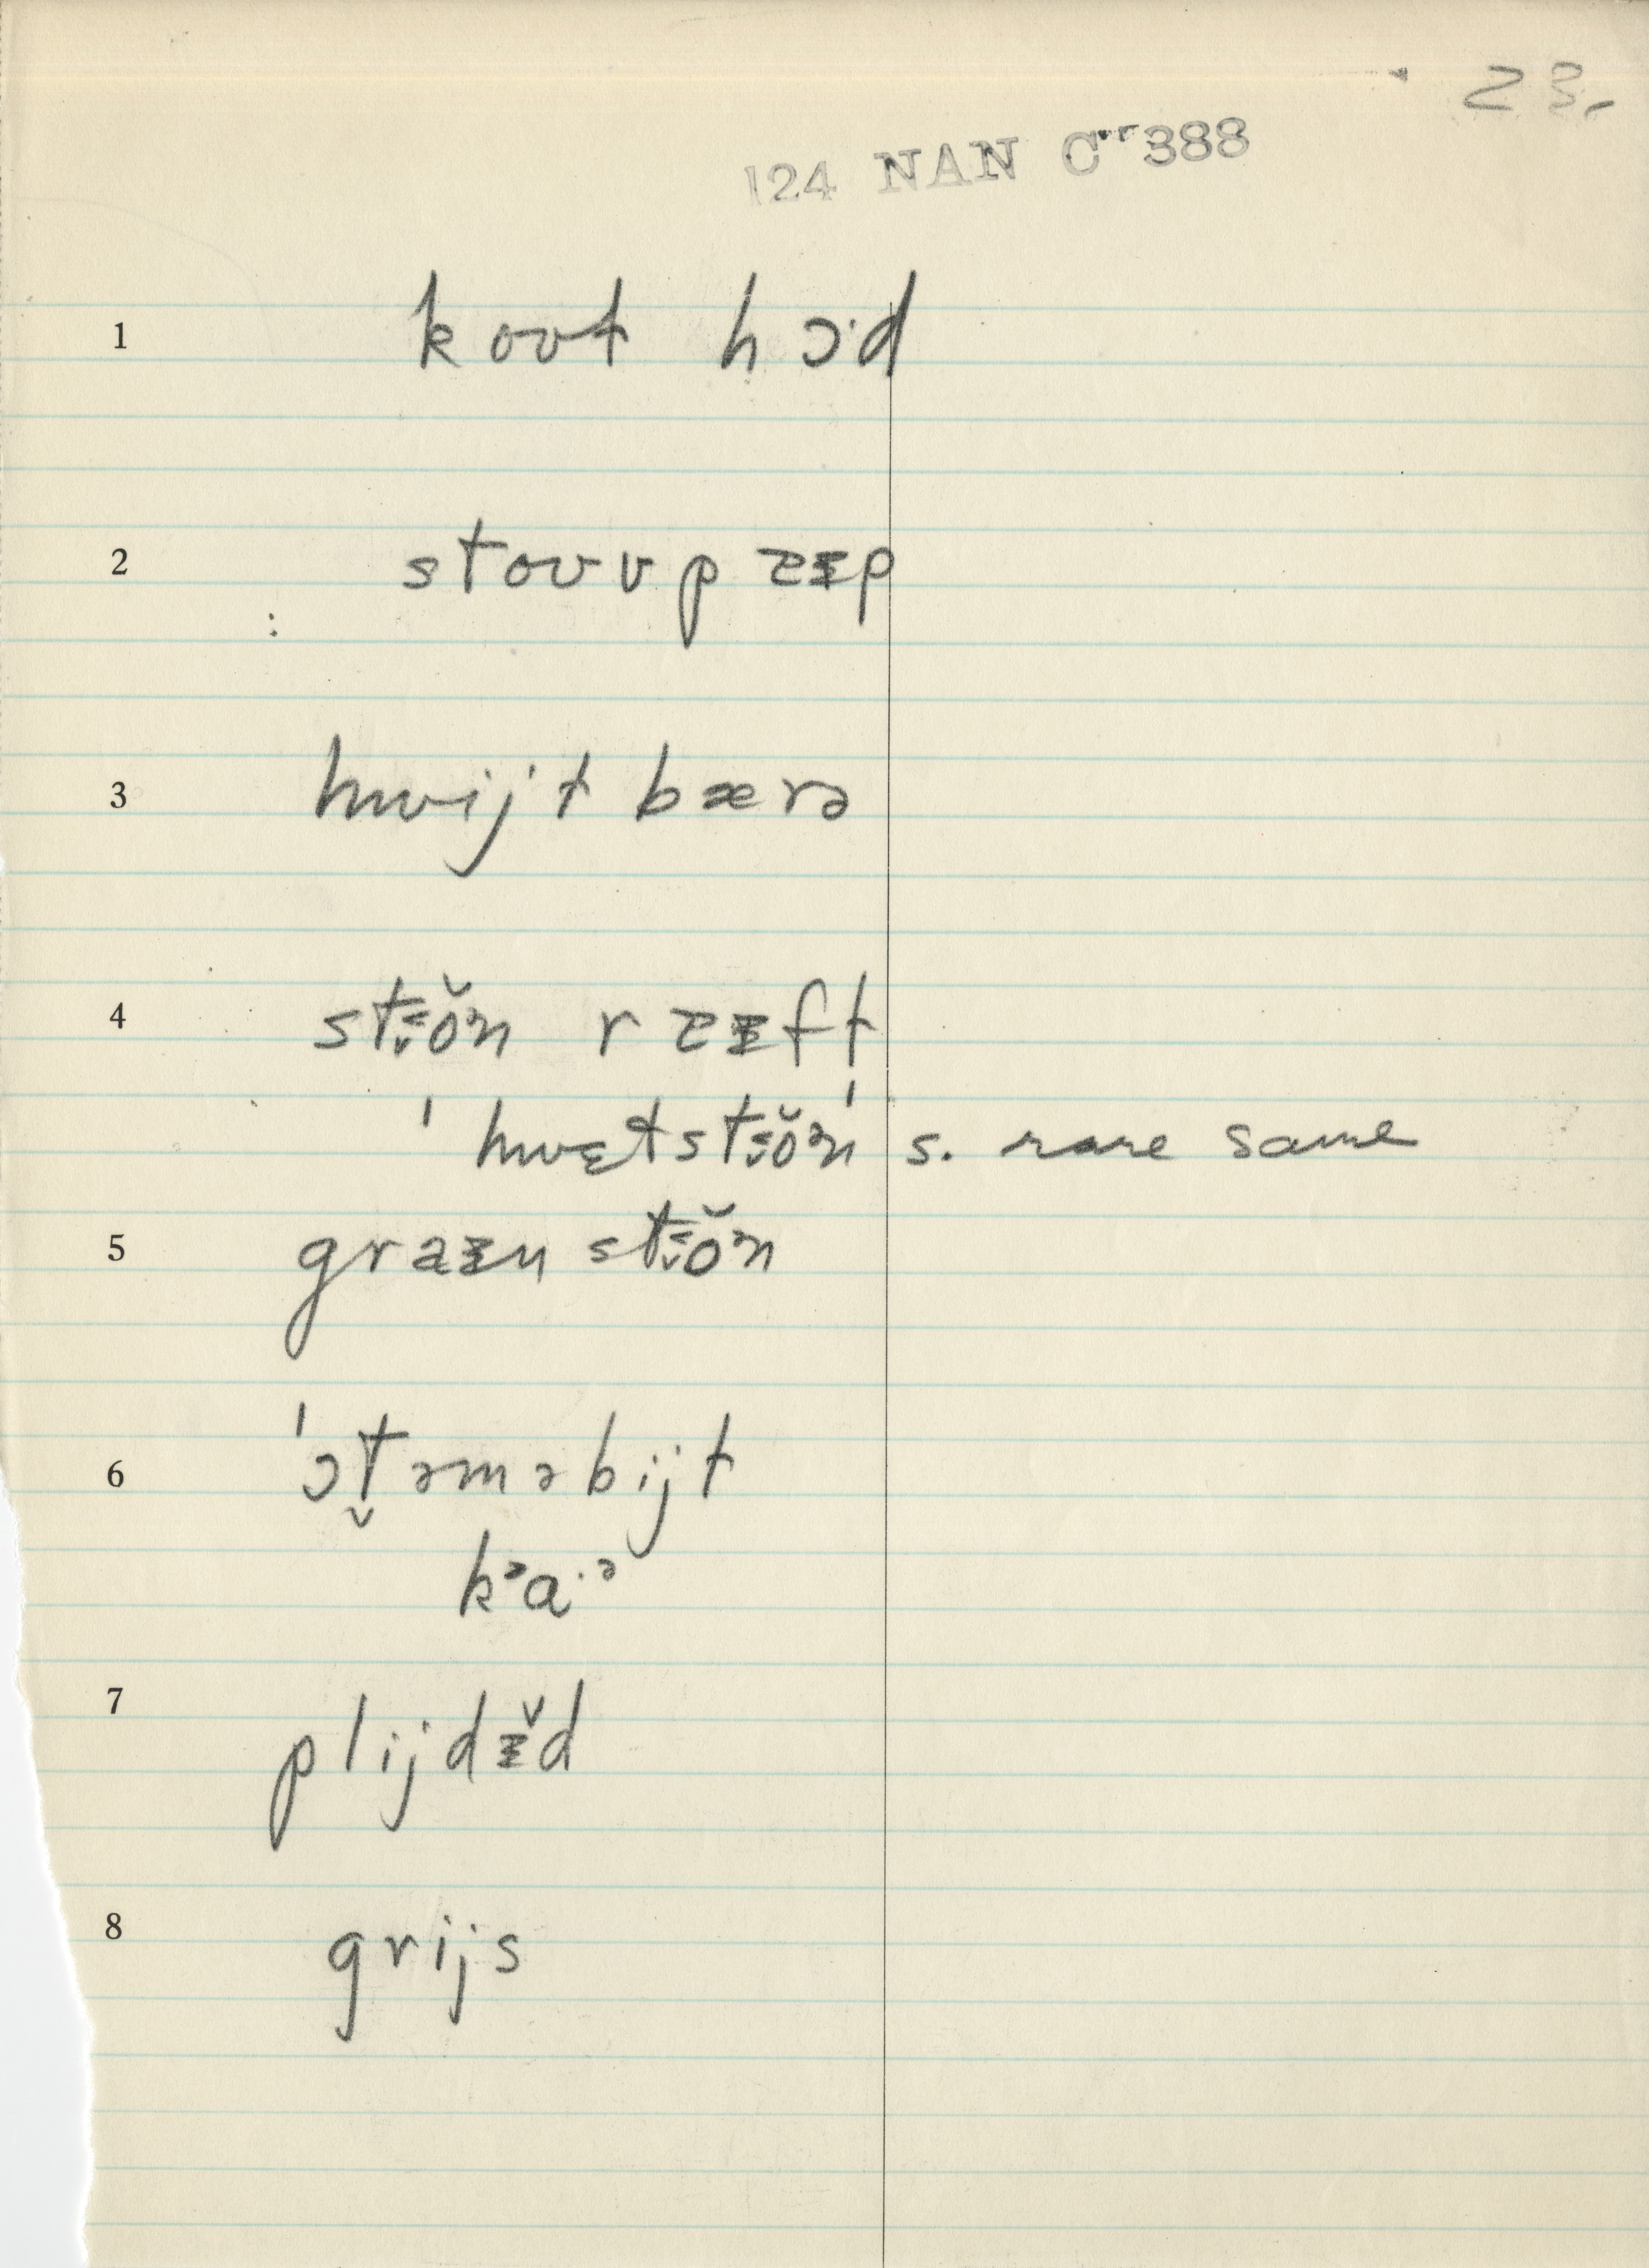 23.
124 NAN C 388
1 koʊt hɔ·d
2 stoʊʊp ᴢɪp
3 hwijt bærə
4 stɪŏən r ᴢɪft
ˈhwɛtstɪŏənˈ s. rare same
5 graɪn stɪŏən
6 ˈɔt̬əməbijt
kᵊa·ᵊ
7 plijdɪ̆d
8 grijs